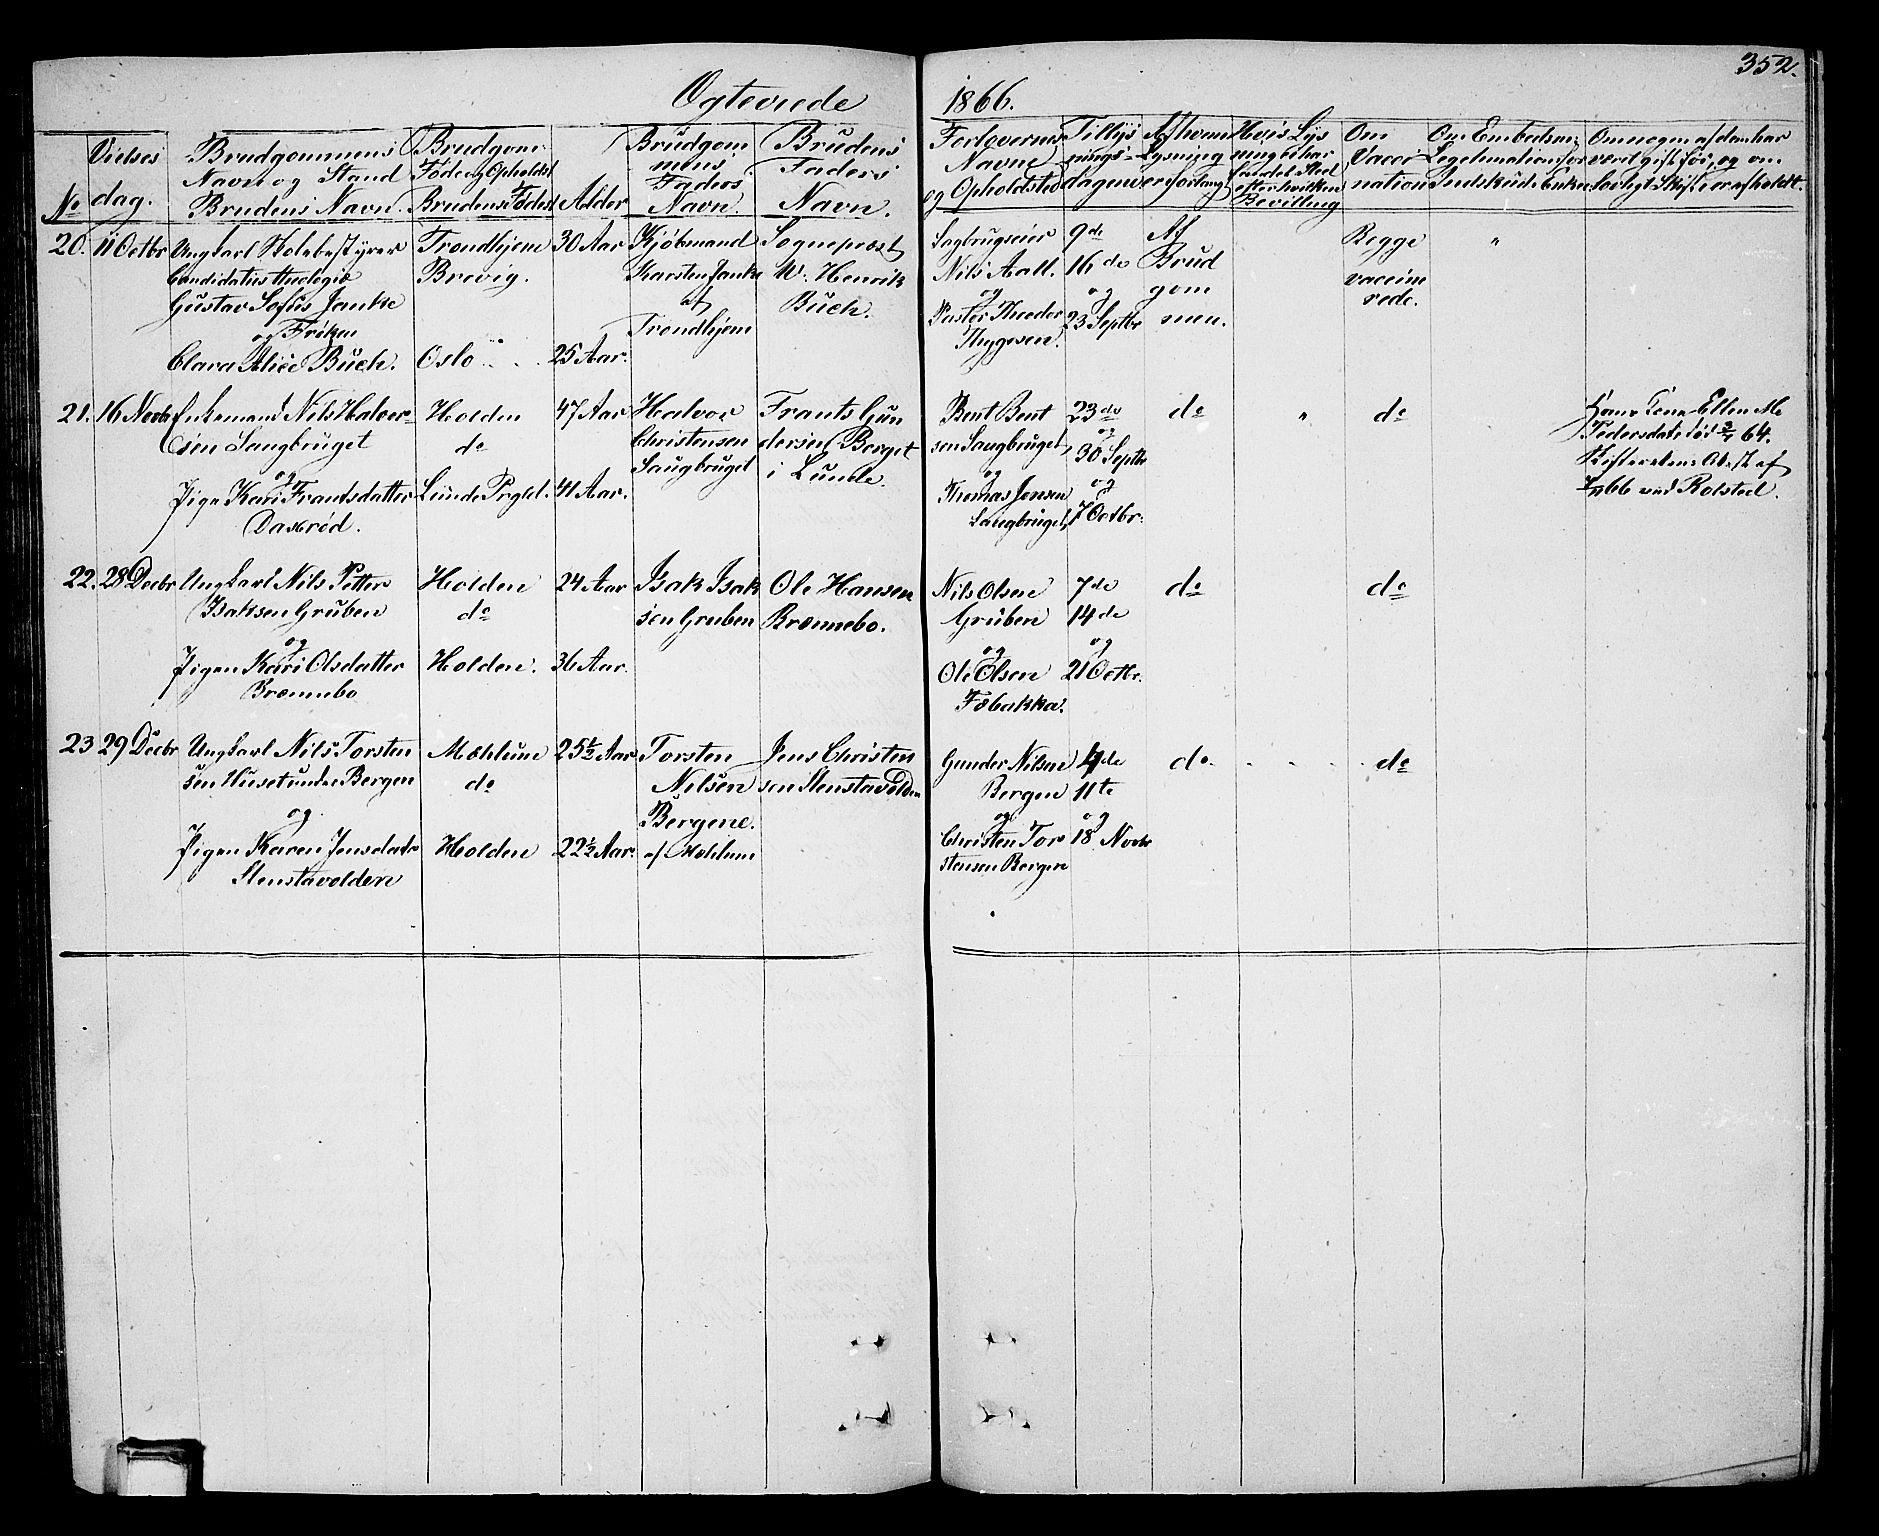 352.
Ogteviede
1866.
No
Vielses
dag.
Brudgommens
Navn og Stand
Brudens Navn.
Brudgom
Føde og Opholdst
Brudens Fødest
Alder
Brudgom
mens
Faders
Navn.
Brudens
Faders
Navn.
Forlovernes
Navne
og Opholdsted
Tillys
nings-
dagene
Af hvem
Lysning
er forlangt
Hvis Lys
ning ei har
fundet Sted
efter hvilken
Bevilling
Om
Vacci
nation
Om Embedsm
Legetimation for
Indskud i Enkek
Om nogen af dem har
været gift før, og om
lovligt Skifte er afholdt.
20.
11 Octbr
Ungkarl Skolebestyrer
Candidatus theologiæ
Gustav Sofus Janke
og Frøken
Clara Alice Buch.
Trondhjem
Brevig.
Oslo
30 Aar
25 Aar.
Kjøbmand
Karsten Janke
af
Trondhjem
Sognepræst
W. Henrik
Buch.
Sagbrugseier
Nils Aall.
og
Pastor Theodor
Thygesen.
9de
16de
og
23 Septbr
Af
Brud
gom
men.
Begge
vaccine
rede.
"
21.
16 Novbr
Enkemand Nils Halvor-
sen Saugbruget
og
Pige Kari Frantsdatter
Daxrød.
Holden
do
Lunde Prgld.
47 Aar
41 Aar.
Halvor
Christensen
Saugbruget
Frants Gun
dersen Berget
i Lunde.
Bent Bent
sen Saugbruget
og
Thomas Jensen
Saugbruget
23de
og
30 Septbr
og
7 Octbr.
do
"
do
Hans Kone Ellen M.
Pedersdatr død 64.
Skifterettens Att. af
66 ved Rolsted.
22.
28 Decbr
Ungkarl Nils Petter
Isaksen Gruben
og
Pigen Kari Olsdatter
Brænnebo
Holden
do
Holden.
24 Aar
36 Aar.
Isak Isak
sen Gruben
Ole Hansen
Brænnebo.
Nils Olsen
Gruben
og
Ole Olsen
Fæbakka.
7de
14de
og
21 Octbr.
do
do
23
29 Decbr
Ungkarl Nils Torsten
sen Huset under Bergen
og
Pigen Karen Jensdatr
Stenstavolden
Mælum
do
Holden
25½ Aar
22½ Aar.
Torsten
Nilsen
Bergene.
af Mælum
Jens Christen
sen Stenstavolden
Gunder Nilsen
Bergen
og
Christen Tor
stensen Bergen
4de
11te
og
18 Novbr
do.
do